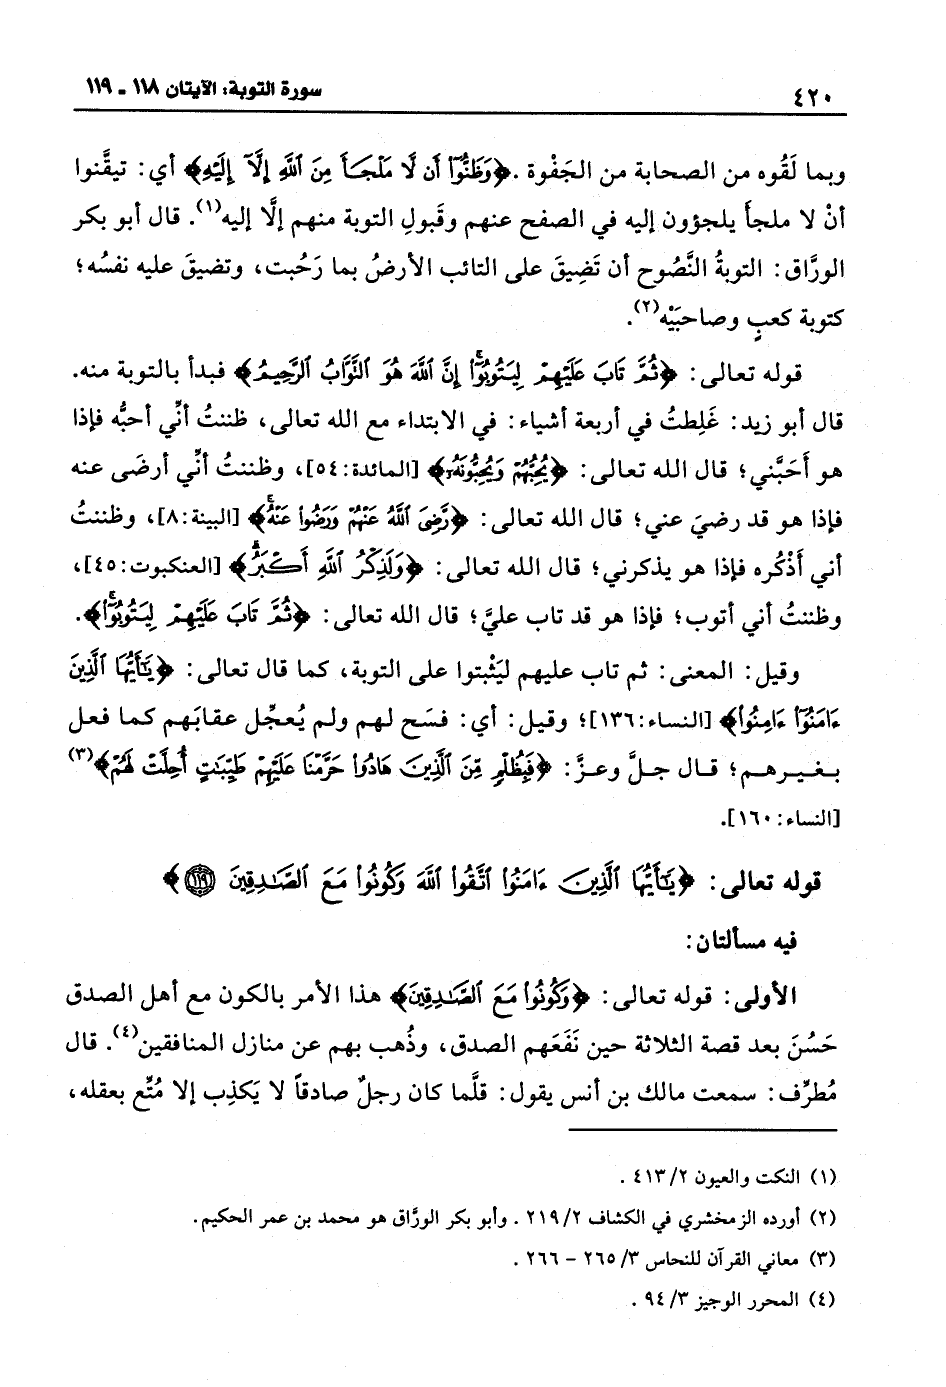 ٤٢٠
سورة التوبة: الآيتان ١١٨ ـ ١١٩
وبما لَقُوه من الصحابة من الجَفْوة . ﴿وَظَنُّوٓا۟ أَن لَّا مَلْجَأَ مِنَ ٱللَّهِ إِلَّآ إِلَيْهِ﴾ أي: تيقَّنوا
أنْ لا ملجأَ يلجؤون إليه في الصفح عنهم وقَبولِ التوبة منهم إلَّا إليه(١). قال أبو بكر
الورَّاق: التوبةُ النَّصُوح أن تَضِيقَ على التائب الأرضُ بما رَحُبت، وتضيقَ عليه نفسُه؛
كتوبة كعبٍ وصاحبَيْه(٢).
قوله تعالى: ﴿ثُمَّ تَابَ عَلَيْهِمْ لِيَتُوبُوٓا۟ۚ إِنَّ ٱللَّهَ هُوَ ٱلتَّوَّابُ ٱلرَّحِيمُ﴾ فبدأ بالتوبة منه.
قال أبو زيد: غَلِطتُ في أربعة أشياء: في الابتداء مع الله تعالى، ظننتُ أنِّي أحبُّه فإذا
هو أَحَبَّني؛ قال الله تعالى: ﴿يُحِبُّهُمْ وَيُحِبُّونَهُۥٓ﴾ [المائدة:٥٤]، وظننتُ أنِّي أرضَى عنه
فإذا هو قد رضيَ عني؛ قال الله تعالى: ﴿رَّضِىَ ٱللَّهُ عَنْهُمْ وَرَضُوا۟ عَنْهُۚ﴾ [البينة:٨]، وظننتُ
أني أَذْكُره فإذا هو يذكرني؛ قال الله تعالى: ﴿وَلَذِكْرُ ٱللَّهِ أَكْبَرُۗ﴾ [العنكبوت:٤٥]،
وظننتُ أني أتوب؛ فإذا هو قد تاب عليَّ؛ قال الله تعالى: ﴿ثُمَّ تَابَ عَلَيْهِمْ لِيَتُوبُوٓا۟ۚ﴾.
وقيل: المعنى: ثم تاب عليهم ليَثْبتوا على التوبة، كما قال تعالى: ﴿يَٰٓأَيُّهَا ٱلَّذِينَ
ءَامَنُوٓا۟ ءَامِنُوا۟﴾ [النساء:١٣٦]؛ وقيل: أي: فسَح لهم ولم يُعجِّل عقابَهم كما فعل
بغيرهم؛ قال جلَّ وعزَّ: ﴿فَبِظُلْمٍ مِّنَ ٱلَّذِينَ هَادُوا۟ حَرَّمْنَا عَلَيْهِمْ طَيِّبَٰتٍ أُحِلَّتْ لَهُمْ﴾(٣)
[النساء:١٦٠].
قوله تعالى: ﴿يَٰٓأَيُّهَا ٱلَّذِينَ ءَامَنُوا۟ ٱتَّقُوا۟ ٱللَّهَ وَكُونُوا۟ مَعَ ٱلصَّٰدِقِينَ ١١٩﴾
فيه مسألتان:
الأولى: قوله تعالى: ﴿وَكُونُوا۟ مَعَ ٱلصَّٰدِقِينَ﴾ هذا الأمر بالكون مع أهل الصدق
حَسُنَ بعد قصة الثلاثة حين نَفَعَهم الصدق، وذُهب بهم عن منازل المنافقين(٤). قال
مُطرِّف: سمعت مالك بن أنس يقول: قلَّما كان رجلٌ صادقاً لا يَكذِب إلا مُتِّع بعقله،
(١) النكت والعيون ٢/ ٤١٣ .
(٢) أورده الزمخشري في الكشاف ٢/ ٢١٩ . وأبو بكر الورَّاق هو محمد بن عمر الحكيم.
(٣) معاني القرآن للنحاس ٣/ ٢٦٥ - ٢٦٦ .
(٤) المحرر الوجيز ٣/ ٩٤ .